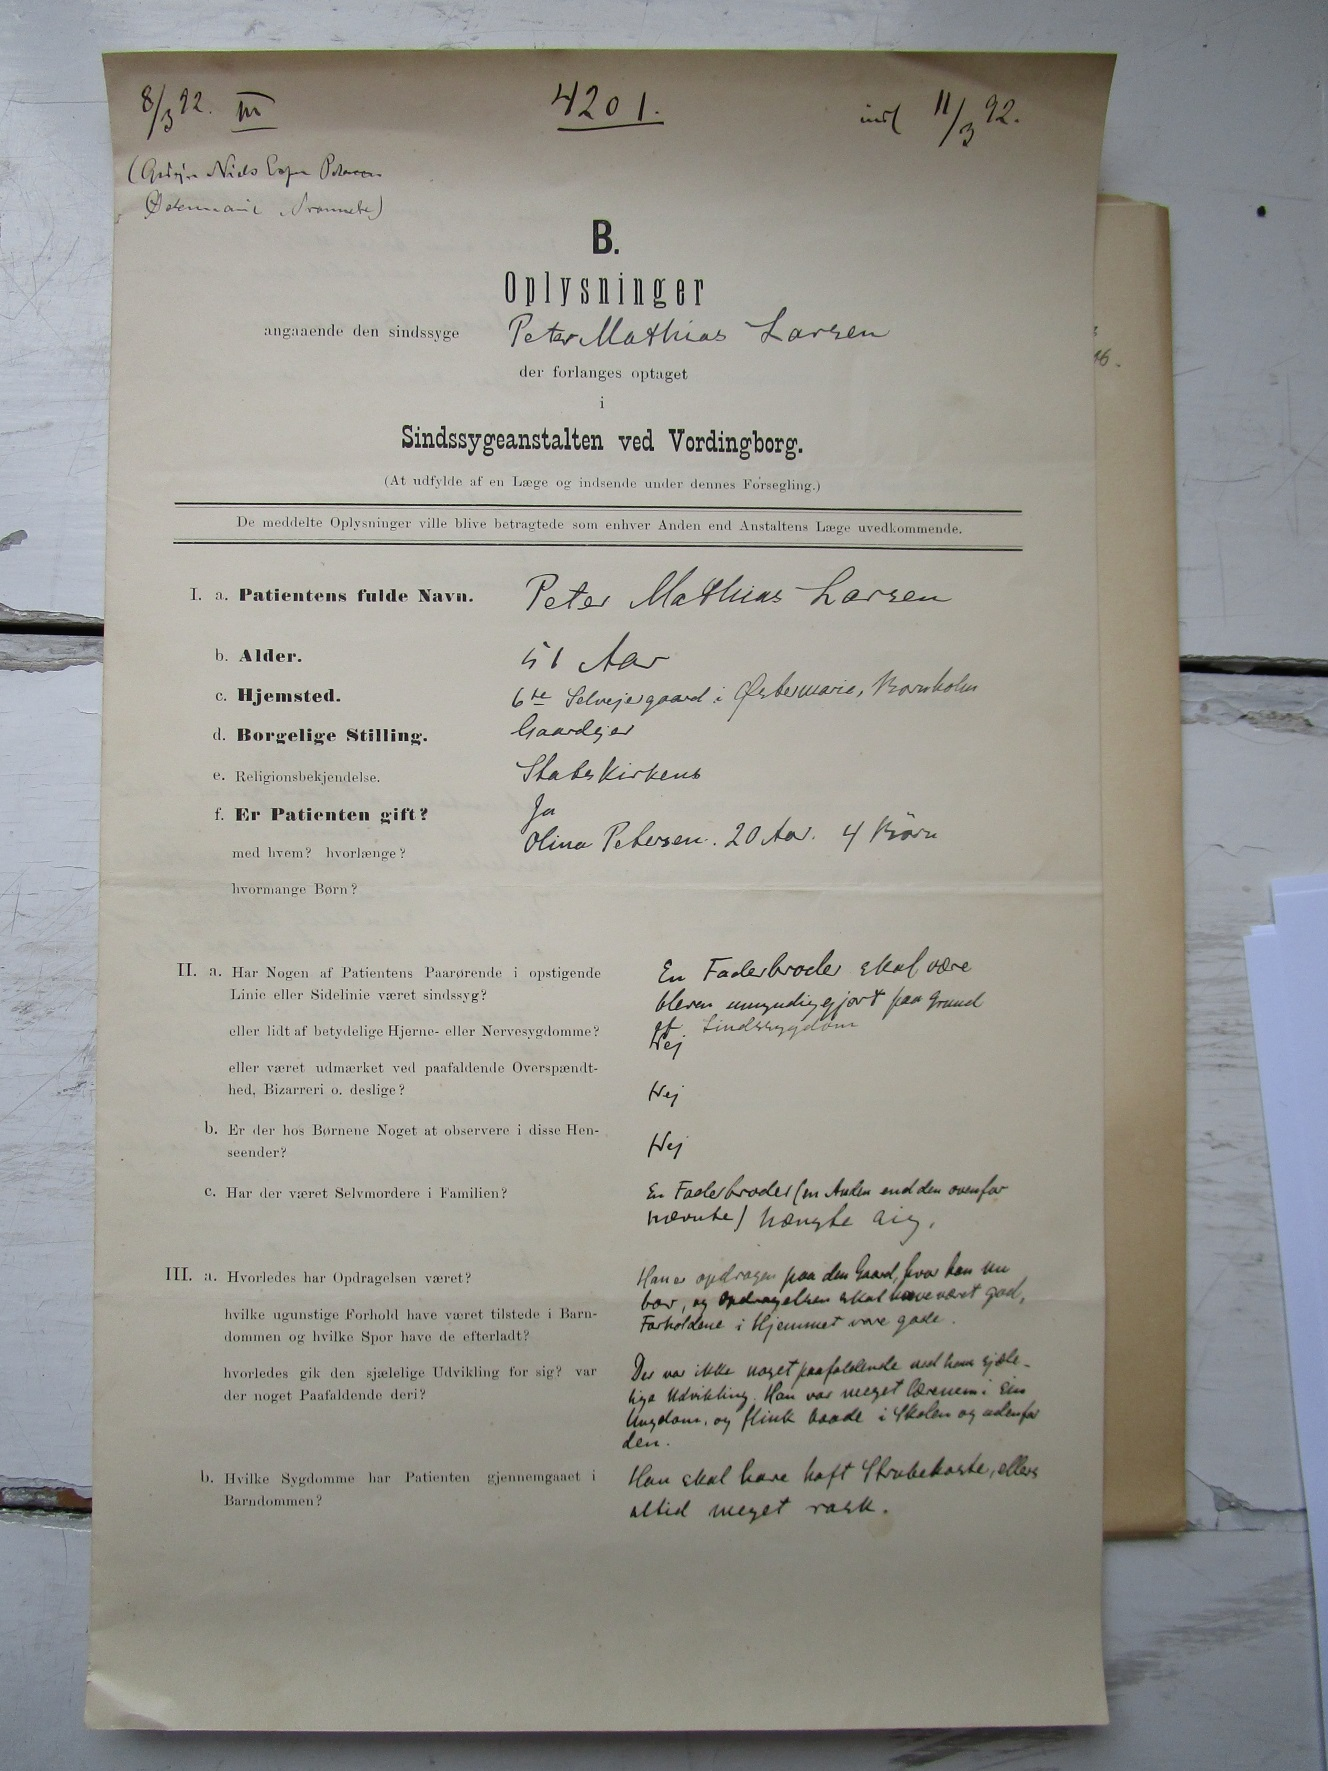 8/3 92. III
4201.
indl 11/3 92.
Niels
Østermarie
B.
Oplysninger
angaaende den sindssyge Peter Mathias Larsen
der forlanges optaget
i
Sindssygeanstalten ved Vordingborg.
(At udfylde af en Læge og indsende under dennes Forsegling.)
De meddelte Oplysninger ville blive betragtede som enhver Anden end Anstaltens Læge uvedkommende.
I. a. Patientens fulde Navn. Peter Mathias Larsen
b. Alder. 51 Aar
c. Hjemsted. 6te Selvejergaard i Østermarie, Bornholm
d. Borgelige Stilling. Gaardejer
e. Religionsbekjendelse. Statskirkens
f. Er Patienten gift? Ja
med hvem? hvorlænge? Olina Petersen. 20 Aar. 4 Børn
hvormange Børn?
II. a. Har Nogen af Patientens Paarørende i opstigende
Linie eller Sidelinie været sindssyg?
En Faderbroder skal være
bleven umyndiggjort paa Grund
af Sindssygdom
eller lidt af betydelige Hjerne- eller Nervesygdomme?
Nej
eller været udmærket ved paafaldende Overspændt-
hed, Bizarreri o. deslige?
Nej
b. Er der hos Børnene Noget at observere i disse Hen-
seender?
Nej
c. Har der været Selvmordere i Familien?
En Faderbroder (en Anden end den ovenfor
nævnte) hængte sig.
III. a. Hvorledes har Opdragelsen været?
hvilke ugunstige Forhold have været tilstede i Barn-
dommen og hvilke Spor have de efterladt?
Han er opdragen paa den Gaard, hvor han nu
boer, og Opdragelsen skal have været god,
Forholdene i Hjemmet vare gode.
hvorledes gik den sjælelige Udvikling for sig? var
der noget Paafaldende deri?
Der var ikke noget paafaldende ved hans sjæle-
lige Udvikling. Han var meget lærenem i sin
Ungdom, og flink baade i Skolen og udenfor
den.
b. Hvilke Sygdomme har Patienten gjennemgaaet i
Barndommen?
Han skal have haft Strubehoste, ellers
altid meget rask.